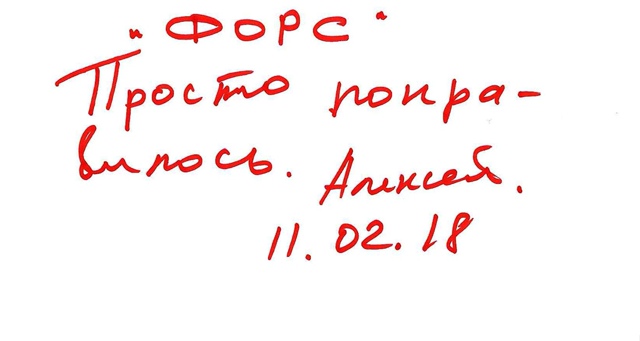 "ФОРС"
Просто понра-
вилось. Алексей.
11.02.18